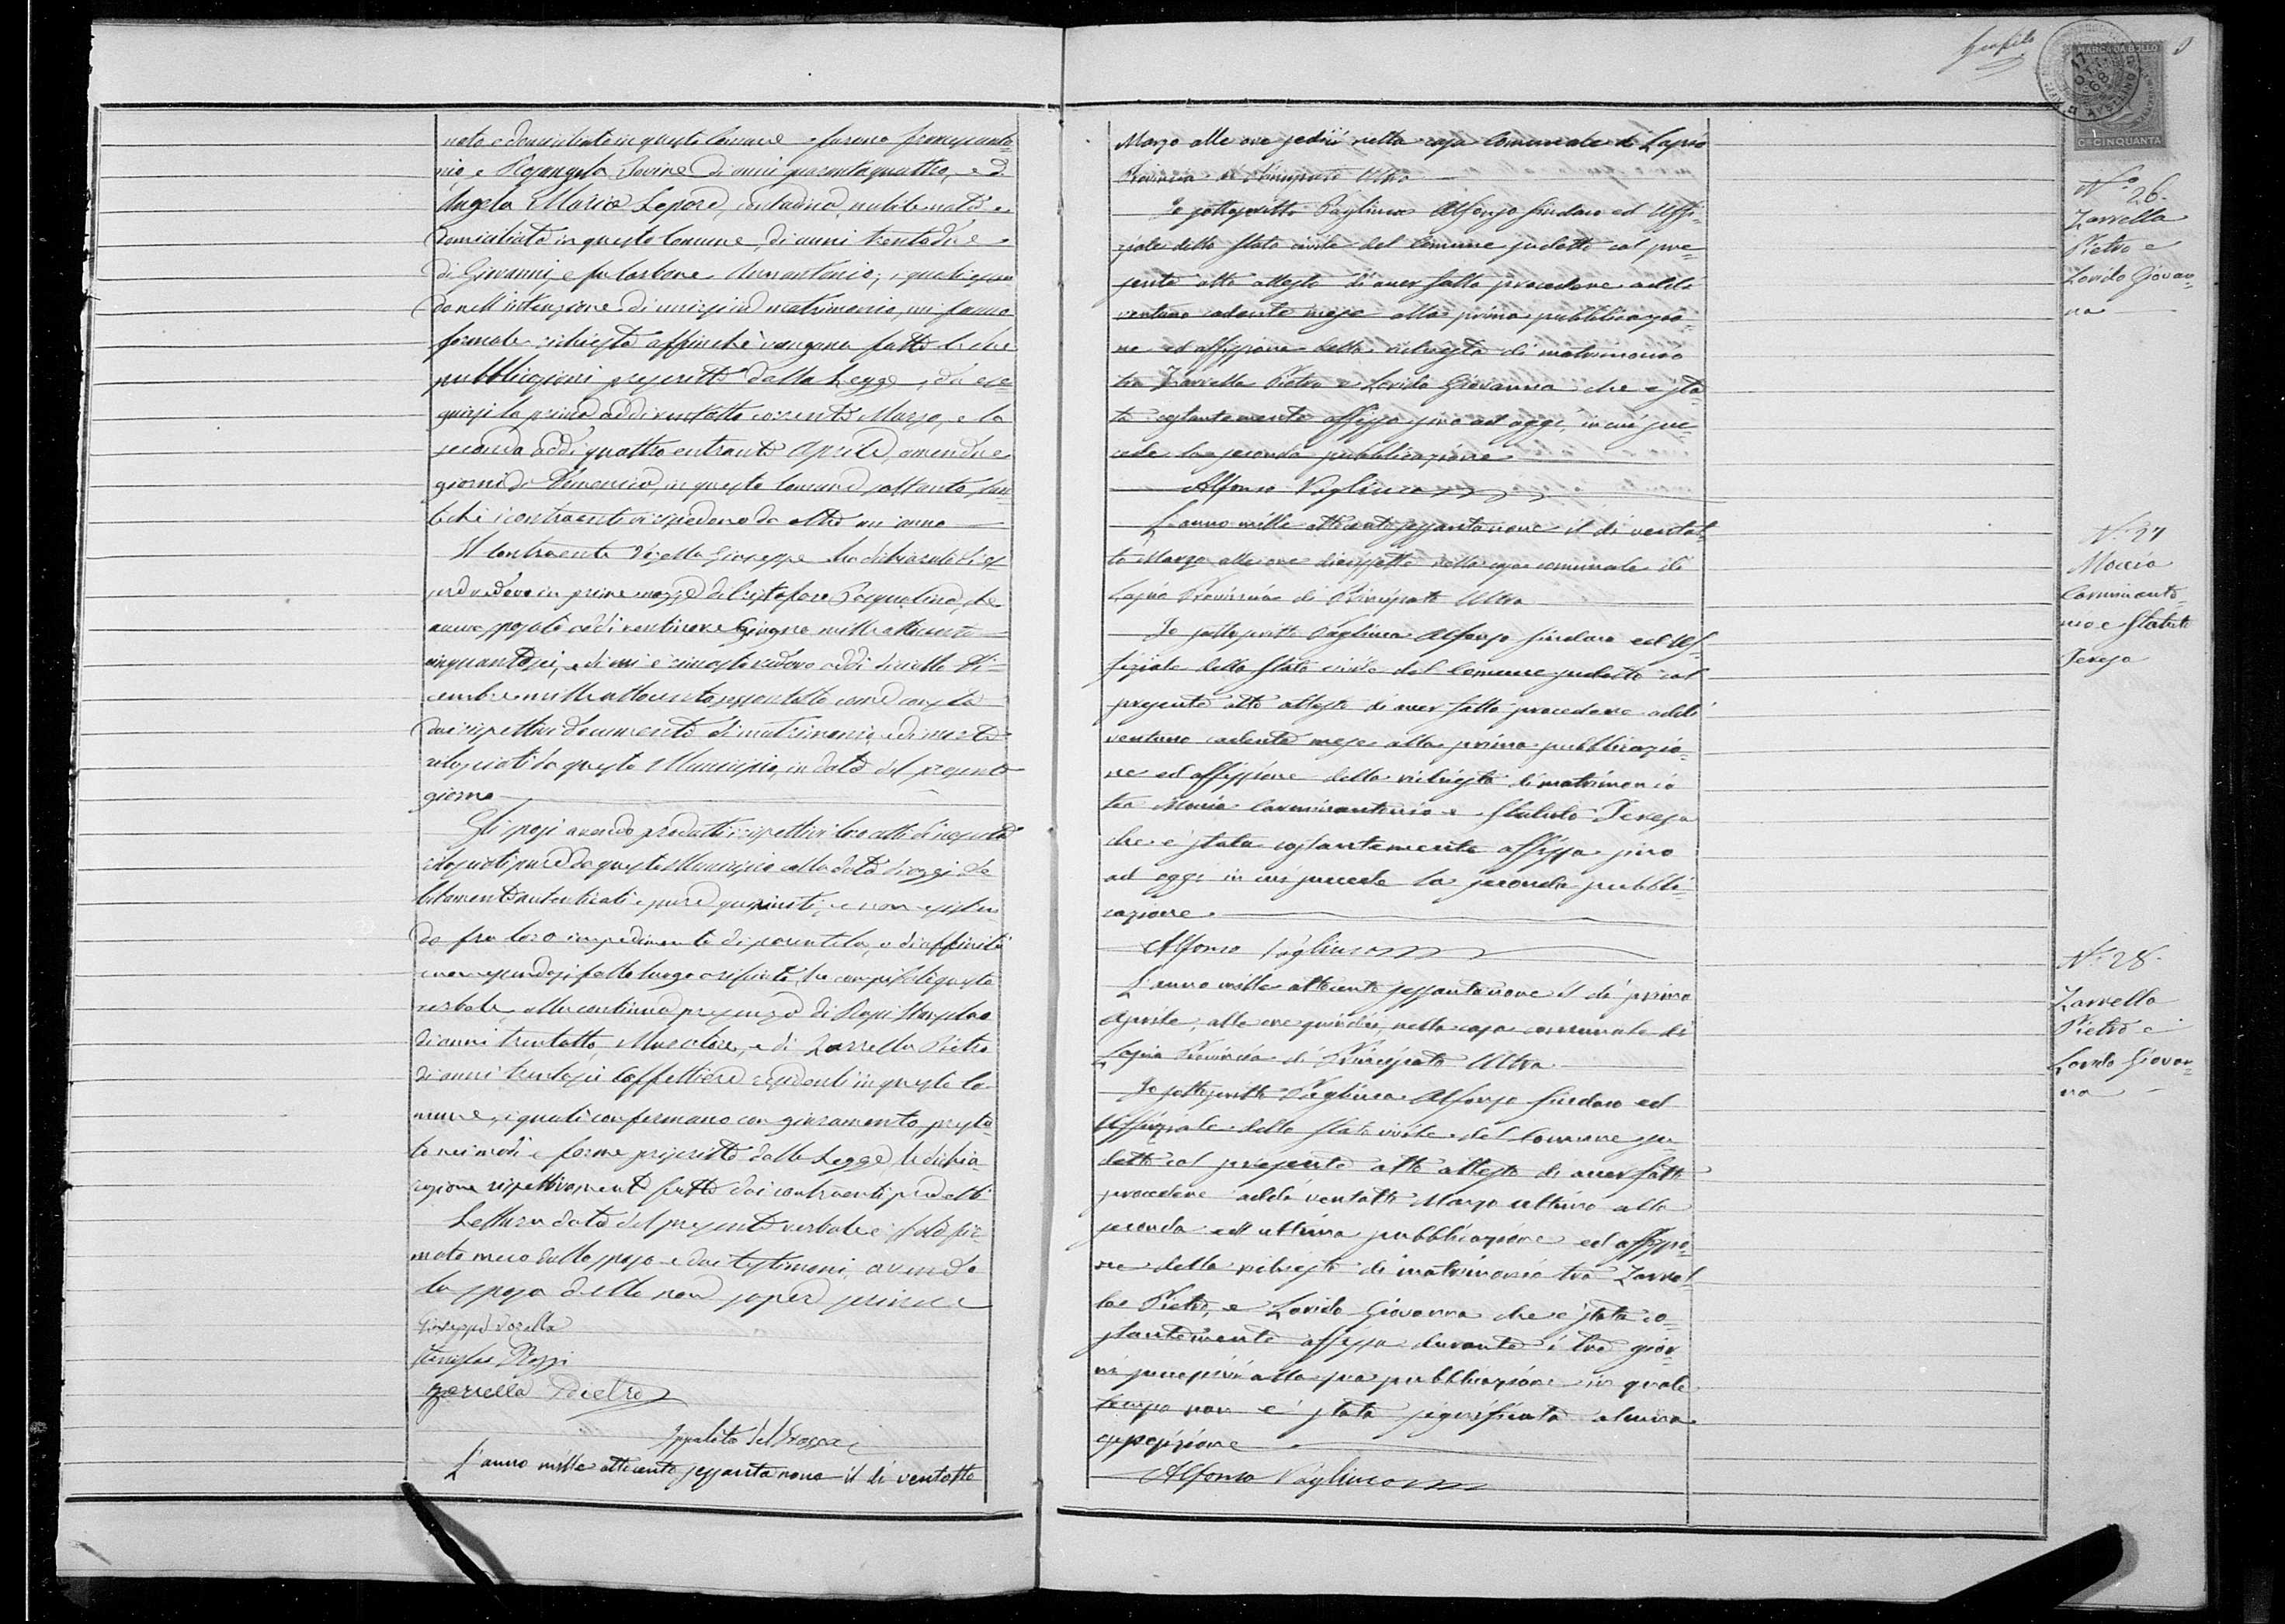 nato e domiciliato in questo Comune e furono Francescanto=
nio, e Rosangela Iovine di anni quarantaquattro, e di
Angela Maria Lepore, contadina, nubile nata e
domiciliata in questo Comune, di anni trentadue
di Giovanni, e fu Carbone Annantonia; i quali essen
do nell'intenzione di unirsi in matrimonio, mi fanno
formale richiesta affinchè vengano fatte le due
pubblicazioni prescritte dalla Legge, da ese=
guirsi la prima addì ventotto corrente Marzo, e la
seconda addì quattro entrante Aprile, amendue
giorni di Domenica, in questo Comune soltanto
i contraenti vi risiedono da oltre un anno
Il contraente Giuseppe ha dichiarato di es=
sere vedovo in prime nozze di Cristofaro Pasqualina, che
aveva sposata addì ventinove Giugno mille ottocento
cinquantasei, e di cui è rimasto vedovo addì diciotto Di=
cembre mille ottocento sessantotto come consta
dai rispettivi documenti di matrimonio, e di morte
rilasciati da questo Municipio, in data del presente
giorno
Gli sposi avendo prodotti i rispettivi loro atti di nascita
rilasciati pure da questo Municipio colla data di oggi de
bitamente autenticati e pure e non esisten
do fra loro impedimento di parentela, o di affinità
si è compilato questo
verbale alla continua presenza di Rossi Stanislao
di anni trentotto, Muratore, e di Zarrella Pietro
di anni trentasei Caffettiere residenti in questo Co=
mune, i quali confermano con giuramento presta=
to nei modi e forme prescritte dalla Legge, la dichia=
razione rispettivamente fatta dai contraenti predetti
Lettura data del presente verbale è stato fir=
mato meco dallo sposo e dai testimoni, avendo
la sposa detto non saper scrivere
Giuseppe
Stanislao Rossi
Zarrella Pietro
Ippolito Del Grosso
L'anno mille ottocento sessantanove il dì ventotto
MARCA DA BOLLO
17
OTT
68
Cmi CINQUANTA
Marzo alle ore sedici nella casa Comunale di Lapio
Provincia di Principato Ultra
Io sottoscritto Pagliuca Alfonso Sindaco ed Uffi=
ziale dello Stato civile del Comune sudetto col pre=
sente atto attesto di aver fatto procedere addì
ventuno cadente mese alla prima pubblicazio=
ne ed affissione della richiesta di matrimonio
tra Zarrella Pietro e Lavido Giovanna che è sta=
ta costantemente affissa sino ad oggi, in cui suc=
cede la seconda pubblicazione
Alfonso Pagliuca
L'anno mille ottocento sessantanove il dì ventot=
to Marzo alle ore diciassette nella casa comunale di
Lapio Provincia di Principato Ultra
Io sottoscritto Pagliuca Alfonso Sindaco ed Uf=
fiziale dello Stato civile del Comune sudetto col
presente atto attesto di aver fatto procedere addì
ventuno cadente mese alla prima pubblicazio=
ne ed affissione della richiesta di matrimonio
tra Moccia Carminantonio e Statuto Teresa
che è stata costantemente affissa sino
ad oggi in cui succede la seconda pubbli=
cazione
Alfonso Pagliuca
L'anno mille ottocento sessantanove il dì primo
Aprile, alle ore quindici, nella casa comunale di
Lapio Provincia di Principato Ultra
Io sottoscritto Pagliuca Alfonso Sindaco ed
Uffiziale dello Stato civile del Comune su=
detto col presente atto attesto di aver fatto
procedere addì ventotto Marzo ultimo alla
seconda ed ultima pubblicazione ed affissio=
ne della richiesta di matrimonio tra Zarrel=
la Pietro, e Lavido Giovanna che è stata co=
stantemente affissa durante i tre gior=
ni successivi alla sua pubblicazione in quale
tempo non è stata significata alcuna
opposizione
Alfonso Pagliuca
No. 26.
Zarrella
Pietro e
Lavido Giovan=
na
No. 27
Moccia
Carminanto=
nio e Statuto
Teresa
No. 28.
Zarrella
Pietro e
Lavido Giovan=
na